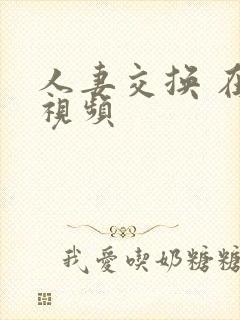 人妻交换 在
視頻
我愛喫奶糖糖